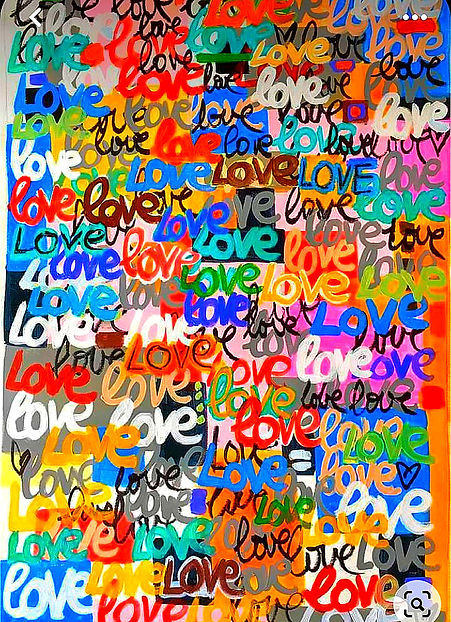 Love love love love
love love love love
Love love love love
Love love love love
Love love love love
love love love love
love love love love
love Love Love LOVE love
love Love love love love
Love love love love love
love love love love love
love love love love love
Love love love Love
love love love love
love Love love love
Love love love love
love love love love
love love love love
love love love love
love love love love
love love love love
love love love love
love love love love
love love love love
love Love love love
love love